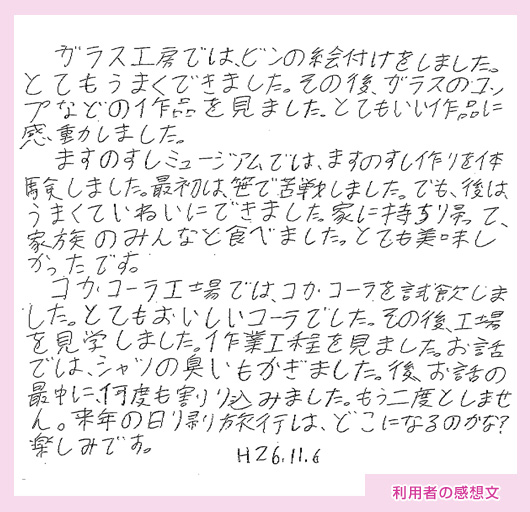 ガラス工房では、ビンの絵付けをしました。
とてもうまくできました。その後、ガラスのコッ
プなどの作品を見ました。とてもいい作品に
感動しました。
ますのすしミュージアムでは、ますのすし作りを体
験しました。最初は、笹で苦戦しました。でも、後は、
うまくていねいにできました。家に持ち帰って、
家族のみんなと食べました。とても美味し
かったです。
コカ・コーラ工場では、コカ・コーラを試飲しま
した。とてもおいしいコーラでした。その後、工場
を見学しました。作業工程を見ました。お話
では、シャツの臭いもかぎました。後、お話の
最中に、何度も割り込みました。もう二度としませ
ん。来年の日帰り旅行は、どこになるのかな?
楽しみです。
H26.11.6
利用者の感想文